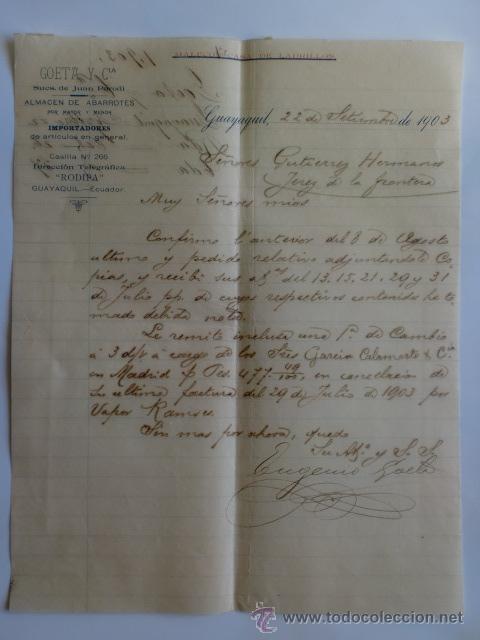 GOETA Y Cía
Sucs. de Juan Parodi
ALMACEN DE ABARROTES
POR MAYOR Y MENOR
IMPORTADORES
de artículos en general.
Casilla Nº 266
Dirección Telegráfica
"RODIPA"
GUAYAQUIL—Ecuador.
Guayaquil, 22 de Setiembre de 1903
Señores Gutierrez Hermanos
Jerez de la frontera
Muy Señores mios
Confirmo l'anterior del 8 de Agosto
ultimo y pedido relativo adjuntandole Co
pias, y recibi sus del 13, 15, 21, 29 y 31
de Julio pp. de cuyos respectivos contenido he to
mado debida nota.
Le remito inclusa una 1ª de Cambio
á 3 d/v á cargo de los Sres Garcia Calamarte & Cia
en Madrid p Pes. 477 49/100, en cancelacion de
Su ultima factura del 29 de Julio di 1903 por
Vapor Ramses.
Sin mas por ahora, quedo
Su y S. S.
Eugenio Goeta
www.todocoleccion.net